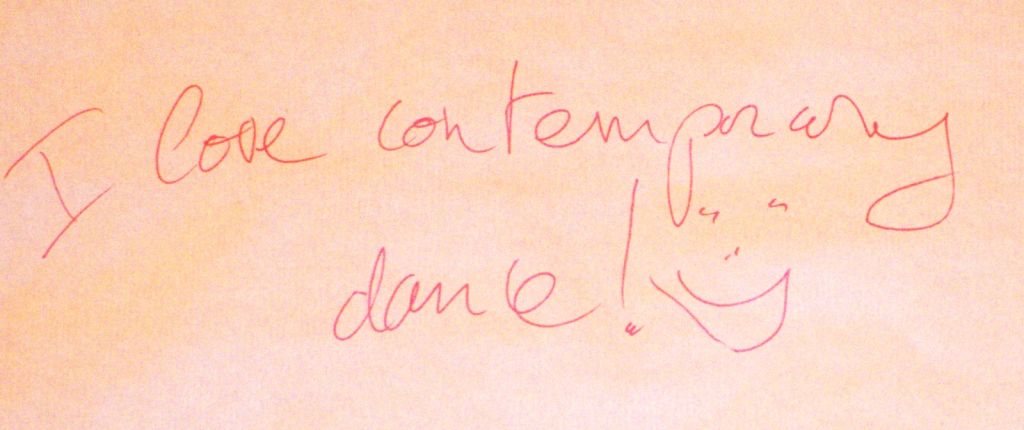 I love contemporary
dance!